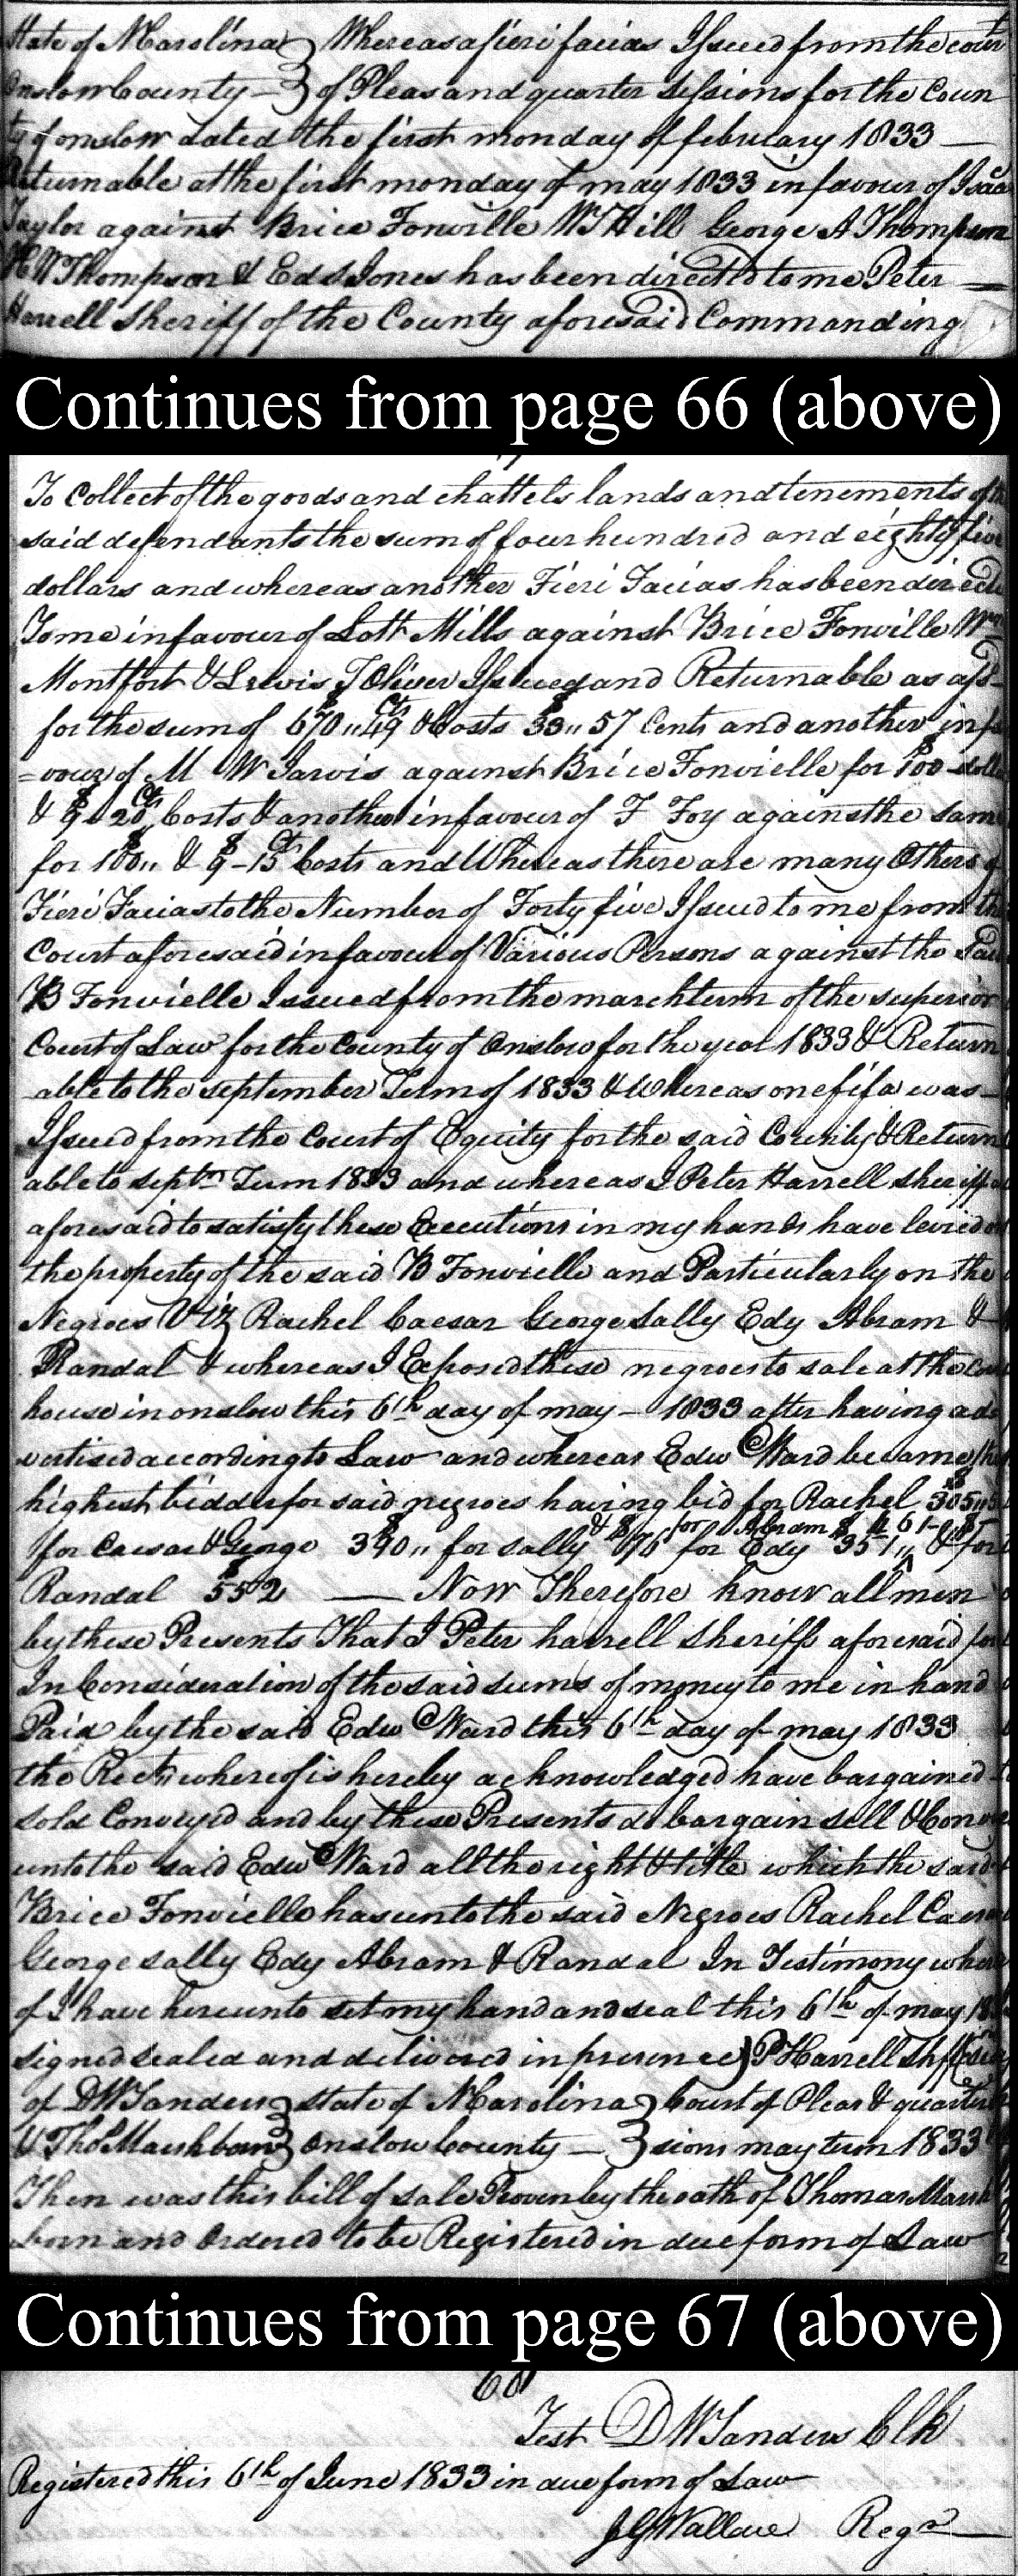 State of N Carolina } Whereas a fieri facias Issued from the court
Onslow County — } of Pleas and quarter sessions for the Coun
ty of onslow dated the first monday of february 1833 —
Returnable at the first monday of may 1833 in favour of Isaac
Taylor against Brice Fonville W T Hill George A Thompson
H W Thompson & Ed S Jones has been directed to me Peter —
Harrell Sheriff of the County aforesaid Commanding
Continues from page 66 (above)
To Collect of the goods and chattels lands and tenements of the
said defendants the sum of four hundred and eighty five
dollars and whereas another Fieri Facias has been directed
To me in favour of Lott Mills against Brice Fonville Wm
Montfort & Lewis T Oliver Issued and Returnable as afsd
for the sum of $670,,49 Cts & Costs $33,,57 Cents and another in fa
=vour of M W Jarvis against Brice Fonvielle for $100 dolls
& $9-20 Cts Costs & another in favour of F Foy against the same
for $100,, & $9-15 Ct Costs and Whereas there are many Others
Fieri Facias to the Number of Forty five Issued to me from the
Court aforesaid in favour of Various Persons against the said
B Fonvielle Issued from the march term of the superior
Court of Law for the County of Onslow for the year 1833 & Return
able to the september Term of 1833 & Whereas one fi fa was
Issued from the Court of Equity for the said County & Return
able to septm Term 1833 and whereas I Peter Harrell sheriff
aforesaid to satisfy these Executions in my hands have levied on
the property of the said B Fonvielle and Particularly on the
Negroes Viz Rachel Caesar George Sally Edy Abram &
Randal & whereas I Exposed these negroes to sale at the court
house in onslow this 6th day of may — 1833 after having ad
vertised according to Law and whereas Edw Ward became the
highest bidder for said negroes having bid for Rachel $305,,
for Caesar & George $390,, for Sally & $ for Edy $351,, for Abram $ 61- & for
Randal $552 — Now Therefore know all men
by these Presents That I Peter harrell Sheriff aforesaid for
In Consideration of the said sums of money to me in hand
Paid by the said Edw Ward this 6th day of may 1833
the Rect whereof is hereby acknowledged have bargained
sold Conveyed and by these Presents do bargain sell & Convey
unto the said Edw Ward all the right & title which the said
Brice Fonvielle has unto the said Negroes Rachel Caesar
George sally Edy Abram & Randal In Testimony where
of I have hereunto set my hand and seal this 6th of may 18
signed sealed and delivered in presence } P Harrell Shff (Seal
of D W Sanders } state of N Carolina } Court of Pleas & quarter
& Tho Marshborn } Onslow County — } sions may term 1833
Then was this bill of sale Proven by the oath of Thomas Marsh
born and Ordered to be Registered in due form of Law
Continues from page 67 (above)
68
Test D W Sanders Clk
Registered this 6th of June 1833 in due form of Law
J G Wallace Regr